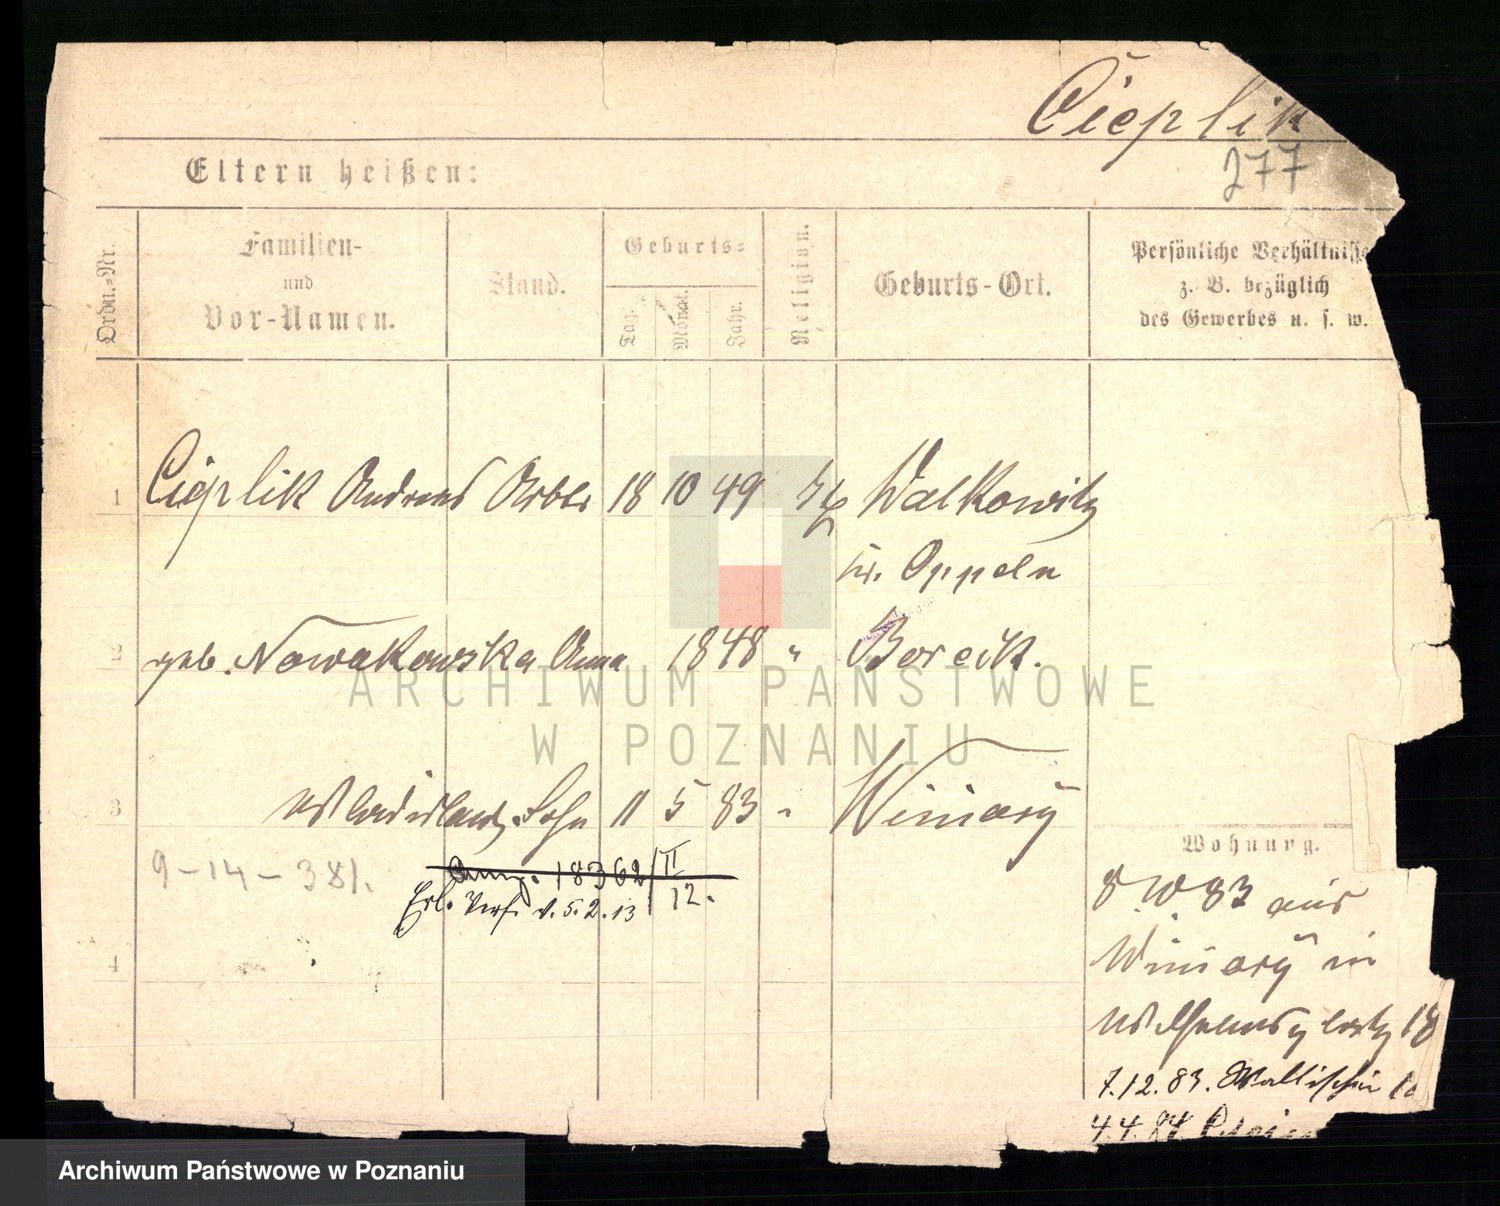 Cieplik
277
Eltern heißen:
Ordn.-Nr.
Familien-
und
Vor-Namen.
Stand.
Geburts-
Tag.
Monat.
Jahr.
Religion.
Geburts-Ort.
Persönliche Verhältnisse
z. B. bezüglich
des Gewerbes u. s. w.
1 Cieplik Andreas Arbtr 18 10 49 Walkowitz
Kr. Oppeln
2 geb. Nowakowska Anna 1848 " Borek.
3 Wladislaus, Sohn 11 5 83 " Winiary
9-14-381.
18362/II
12.
v. 5.2.13
4
Wohnung.
83 aus
Winiary in
Wilhelmsplatz 18
7.12.83. Wallischei
4.4.84.
ARCHIWUM PAŃSTWOWE
W POZNANIU
Archiwum Państwowe w Poznaniu